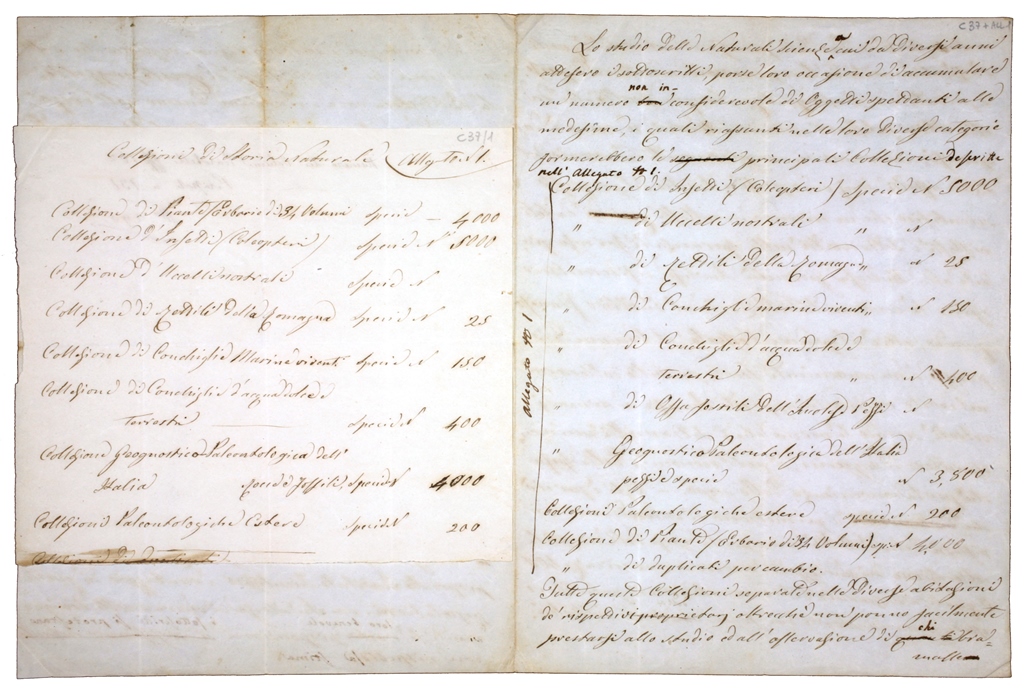 C 37/1
Collezione di Storia Naturale Allegato N. 1.
Collezione di Piante/Erbario di 34 Volumi Specie — 4000
Collezione d'Insetti/Coleopteri/ Specie N 8000
Collezione d'Uccelli nostrali Specie N
Collezione di Rettili della Romagna Specie N 25
Collezione di Conchiglie Marine viventi Specie N 150
Collezione di Conchiglie d'acqua dolce e
terrestri Specie N 400
Collezione Geognostico-Paleontologica dell'
Italia Rocce e Fossili, Specie N 4000
Collezioni Paleontologiche Estere Specie N 200
C 37 + ALL 1
Lo studio delle Naturali Scienze a cui da diversi anni
attesero i sottoscritti, porse loro occasione di accumulare
un numero non in-
considerevole di Oggetti spettanti alle
medesime, i quali riassunti nelle loro diverse categorie
formerebbero le principali Collezioni descritte
nell'Allegato N 1.
Collezione di Insetti/Coleopteri/ Specie N 8000
" di Uccelli nostrali " N
" di Rettili della Romagna " N 25
" di Conchiglie marine viventi " N 150
" di Conchiglie d'acqua dolce e
terrestri " N 400
" di Ossa fossili dell' N
" Geognostico Paleontologica dell'Italia
pezzi e specie N 3,500
Collezioni Paleontologiche estere specie N 200
Collezione di Piante/Erbario di 34 Volumi/ sp. N 4000
" di duplicati per cambio.
allegato N 1
Tutte queste Collezioni separate nelle diverse abitazioni
de' rispettivi proprietarj oltreché non ponno facilmente
prestarsi allo studio ed all'osservazione di chi bra-
masse